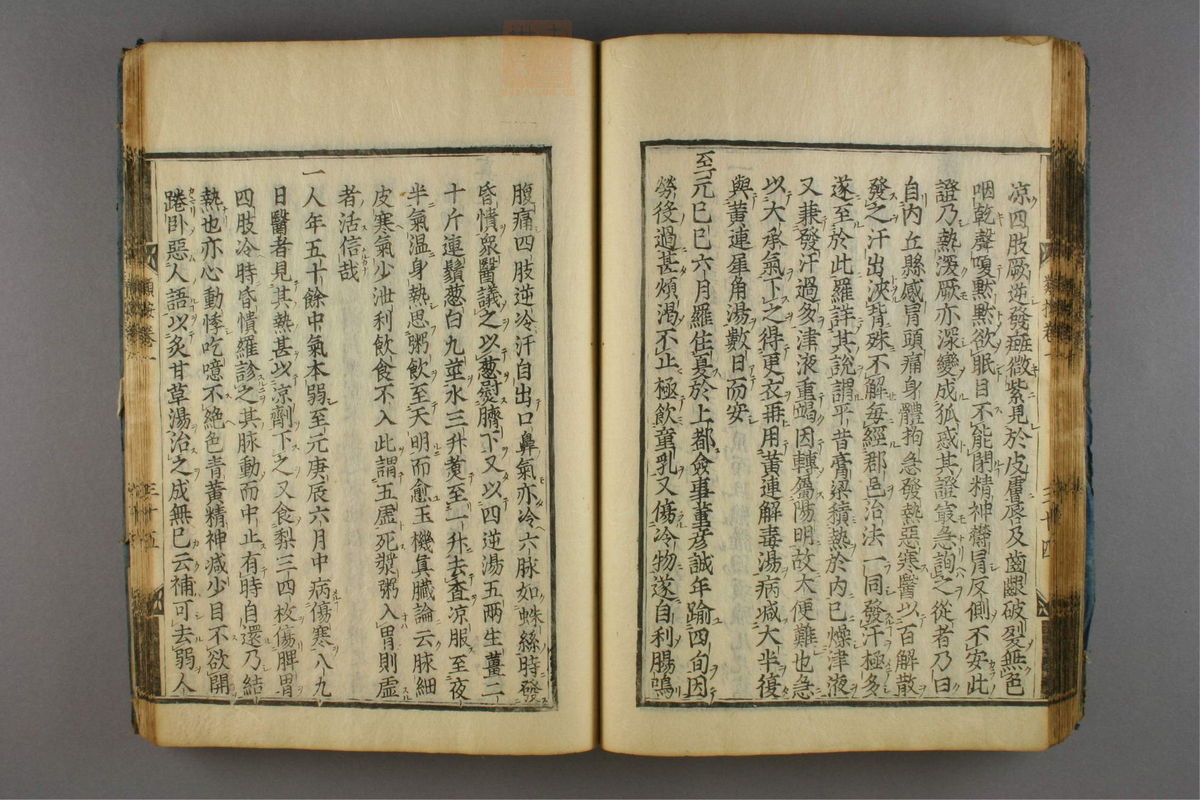 凉四肢厥逆發斑微紫見於皮膚唇及齒齦破裂無色
咽乾聲嗄默默欲眠目不能閉精神欝冒反側不安此
證乃熱深厥亦深變成狐惑其證最急詢之從者乃曰
自内丘縣感冒頭痛身體拘急發熱惡寒醫以百解散
發之汗出浹背殊不解每經郡邑治法一同發汗極多
遂至於此羅詳其說謂平昔膏粱積熱於内已燥津液
又兼發汗過多津液重竭因轉屬陽明故大便難也急
以大承氣下之得更衣再用黄連解毒湯病減大半復
與黄連犀角湯數日而安
至元已巳六月羅住夏於上都僉事董彦誠年踰四旬因
勞役過甚煩渴不止極飲童乳又傷冷物遂自利腸鳴
腹痛四肢逆冷汗自出口鼻氣亦冷六脉如蛛絲時發
昏憒衆醫議之以葱熨臍下又以四逆湯五兩生薑二
十斤連鬚葱白九莖水三升煑至一升去査凉服至夜
半氣温身熱思粥飲至天明而愈玉機真臓論云脉細
皮寒氣少泄利飲食不入此謂五虚死漿粥入胃則虚
者活信哉
一人年五十餘中氣本弱至元庚辰六月中病傷寒八九
日醫者見其熱甚以凉劑下之又食梨三四枚傷脾胃
四肢冷時昏憒羅診之其脉動而中止有時自還乃結
熱也亦心動悸吃噫不絶色青黄精神減少目不欲開
踡卧惡人語以炙甘草湯治之成無已云補可去弱人